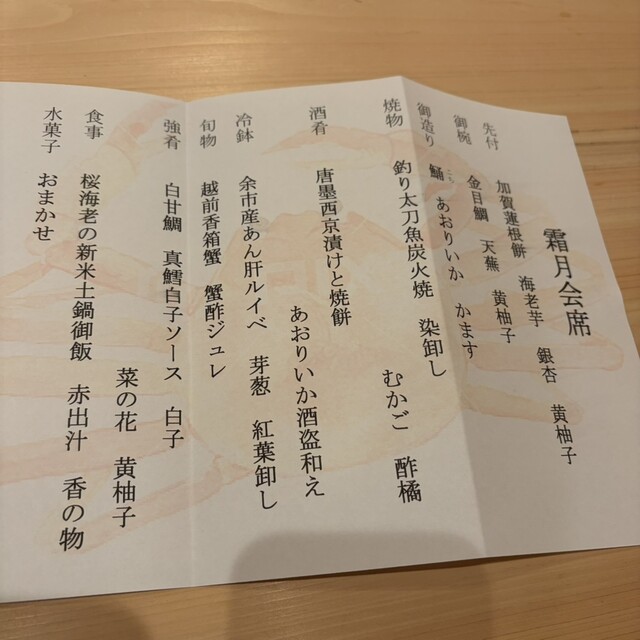 霜月会席
先付 加賀蓮根餅 海老芋 銀杏 黄柚子
御椀 金目鯛 天蕪 黄柚子
御造り 鯒 あおりいか かます
焼物 釣り太刀魚炭火焼 染卸し
むかご 酢橘
酒肴 唐墨西京漬けと焼餅
あおりいか酒盗和え
冷鉢 余市産あん肝ルイベ 芽葱 紅葉卸し
旬物 越前香箱蟹 蟹酢ジュレ
強肴 白甘鯛 真鱈白子ソース 白子
菜の花 黄柚子
食事 桜海老の新米土鍋御飯 赤出汁 香の物
水菓子 おまかせ